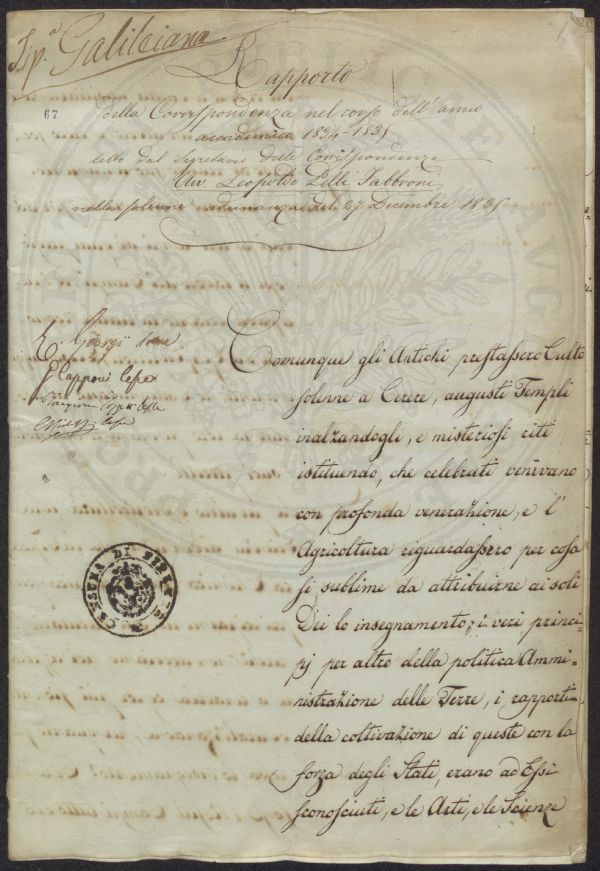 Tip.a Galileiana
1
Rapporto
67
della Corrispondenza nel corso dell'anno
accademico 1834-1835
letto dal Segretario delle Corrispondenze
Avv. Leopoldo Pelli Fabbroni,
nella solenne adunanza del 27 Decembre 1835
Comunque gli Antichi prestassero Culto
solenne a Cerere, augusti Templi
inalzandogli, e misteriosi riti
istituendo, che celebrati venivano
con profonda venerazione, e l'
Agricoltura riguardassero per cosa
sì sublime da attribuirne ai soli
Dei lo insegnamento; i veri princi=
pj per altro della politica Ammi=
nistrazione delle Terre, i rapporti
della coltivazione di queste con la
forza degli Stati, erano ad Essi
sconosciuti, e le Arti, e le Scienze
G Capponi
CENSURA DI FIRENZE